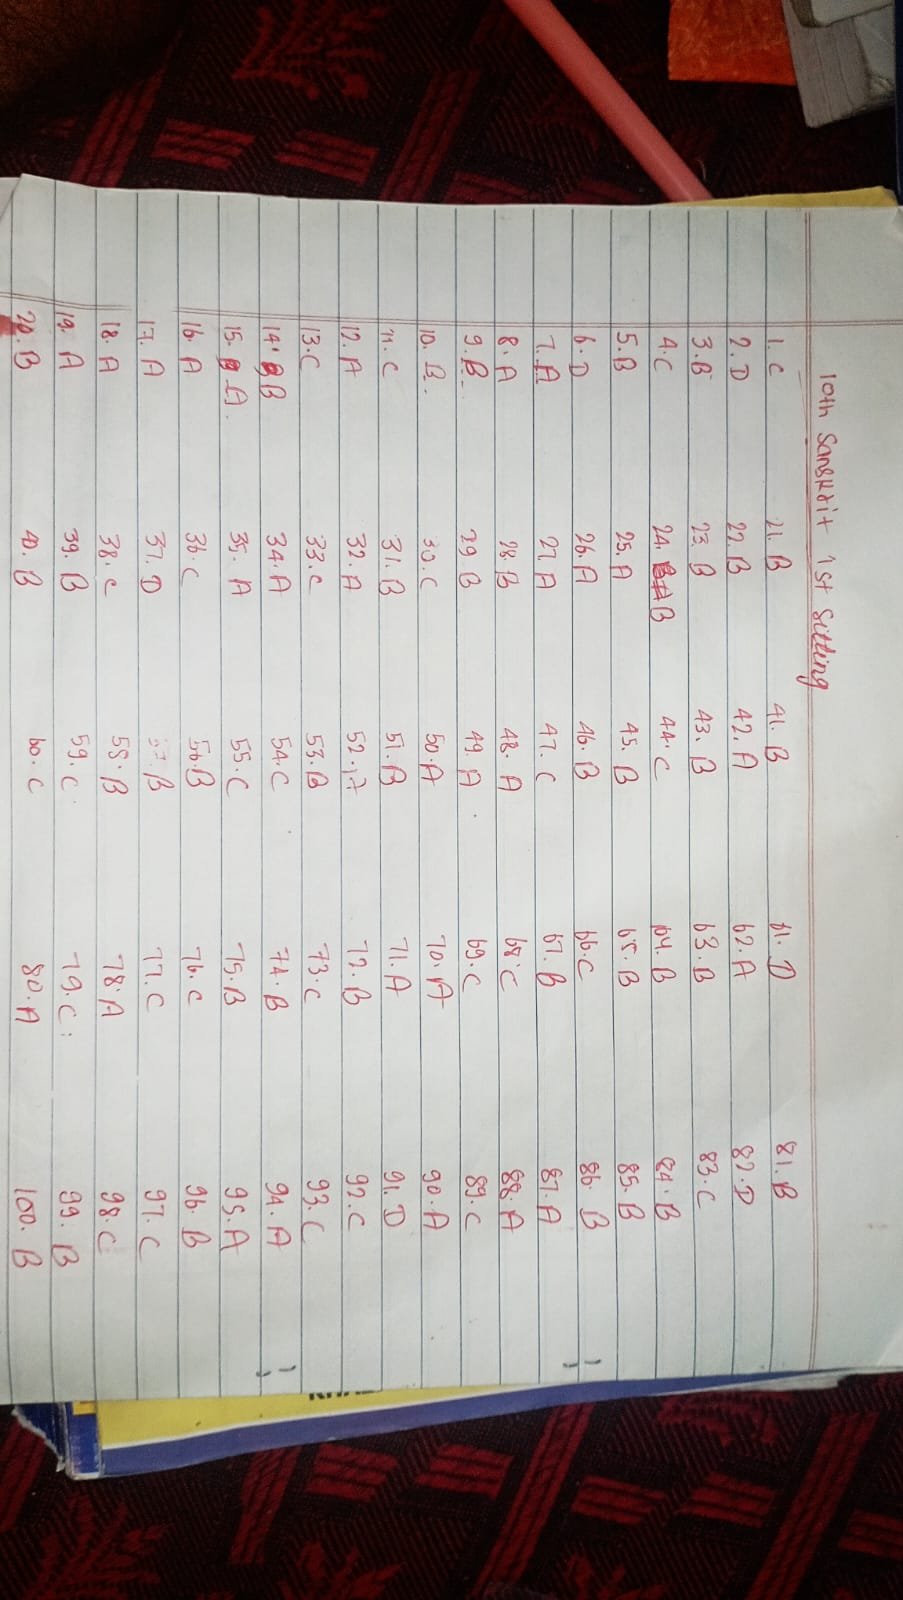 10th Sanskrit 1st Sitting
1. C 21. B 41. B 61. D 81. B
2. D 22. B 42. A 62. A 82. D
3. B 23. B 43. B 63. B 83. C
4. C 24. B 44. C 64. B 84. B
5. B 25. A 45. B 65. B 85. B
6. D 26. A 46. B 66. C 86. B
7. A 27. A 47. C 67. B 87. A
8. A 28. B 48. A 68. C 88. A
9. B 29. B 49. A 69. C 89. C
10. B 30. C 50. A 70. A 90. A
11. C 31. B 51. B 71. A 91. D
12. A 32. A 52. A 72. B 92. C
13. C 33. C 53. B 73. C 93. C
14. B 34. A 54. C 74. B 94. A
15. A 35. A 55. C 75. B 95. A
16. A 36. C 56. B 76. C 96. B
17. A 37. D 57. B 77. C 97. C
18. A 38. C 58. B 78. A 98. C
19. A 39. B 59. C 79. C 99. B
20. B 40. B 60. C 80. A 100. B